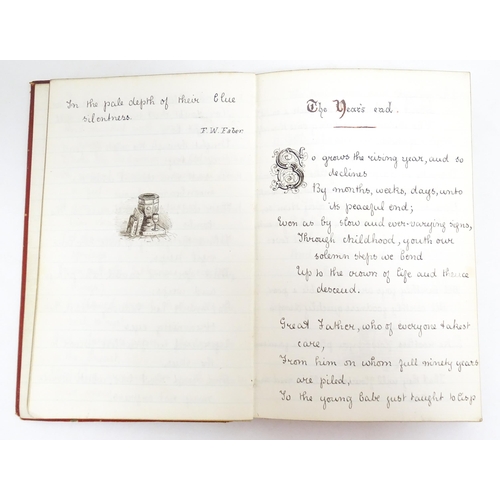 In the pale depth of their blue
silentness.
F. W. Faber.
The Year's end.
So grows the rising year, and so
declines
By months, weeks, days, unto
its peaceful end;
Even as by slow and ever-varying signs,
Through childhood, youth our
solemn steps we bend
Up to the crown of life and thence
descend.
Great Father, who of everyone takest
care,
From him on whom full ninety years
are piled,
To the young babe just taught to lisp